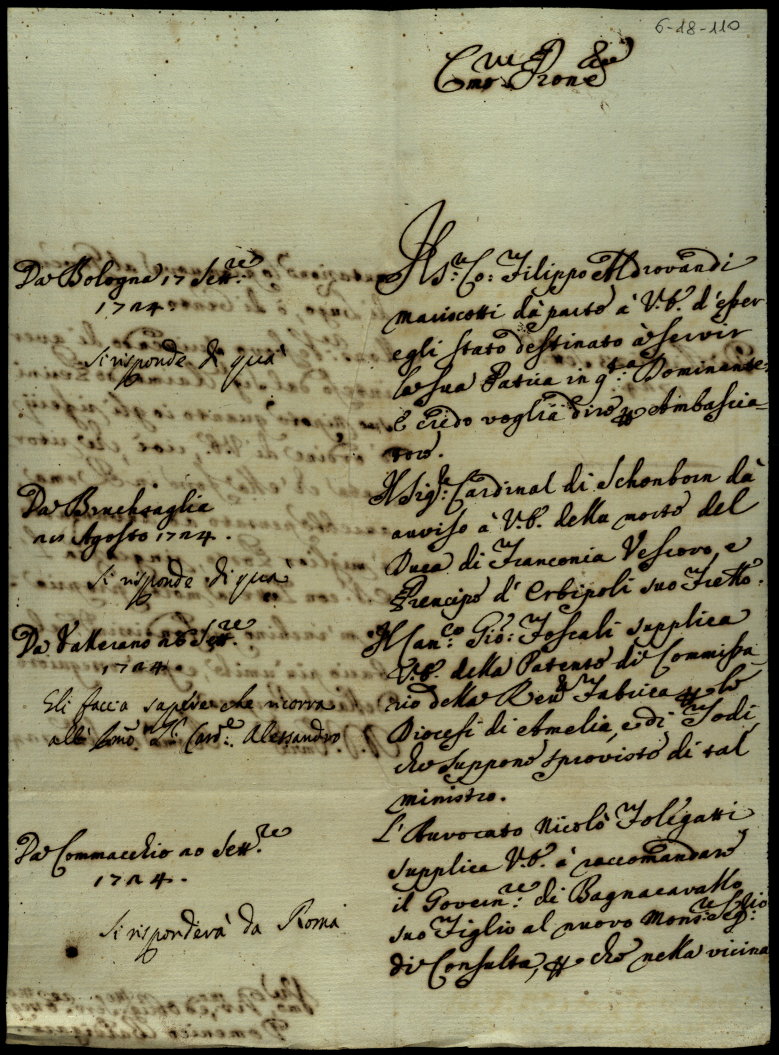 6-18-110
Em.mo Prone
Da Bologna 17 Sett.re
1724.
Si risponde di quà
Il S.r Co: Filippo Aldrovandi
mariscotti dà parte à V.E. d'esser
egli stato destinato à servir
la sua Patria in q.ta Dominante,
E credo voglia dire per Ambascia-
tore.
Da Bruchsaglia
Agosto 1724.
Si risponde di qua
Il Sig.r Cardinal di Schonborn dà
avviso à V.E. della morte del
Duca di Franconia Vescovo, e
Prencipe d'Erbipoli suo Fretto.
Da Vallerano 20 Sett.re
1724.
Gli faccia sapere che ricorra
all' Sig.r Card.e Alessandro
Il Can.co Gio: Foscali supplica
V.E. della Patente di Commissa
rio della Reu.da Fabrica per le
Diocesi di Amelia, e di Todi,
che suppone sproviste di tal
ministro.
Da Commacchio 20 Sett.re
1724.
Si risponderà da Roma
L'Auvocato Nicolò Folegatti
supplica V.E. à raccomandare
il Govern.re di Bagnacavallo
suo Figlio al nuovo Mons.r Seg.rio
di Consulta, per che nella vicina